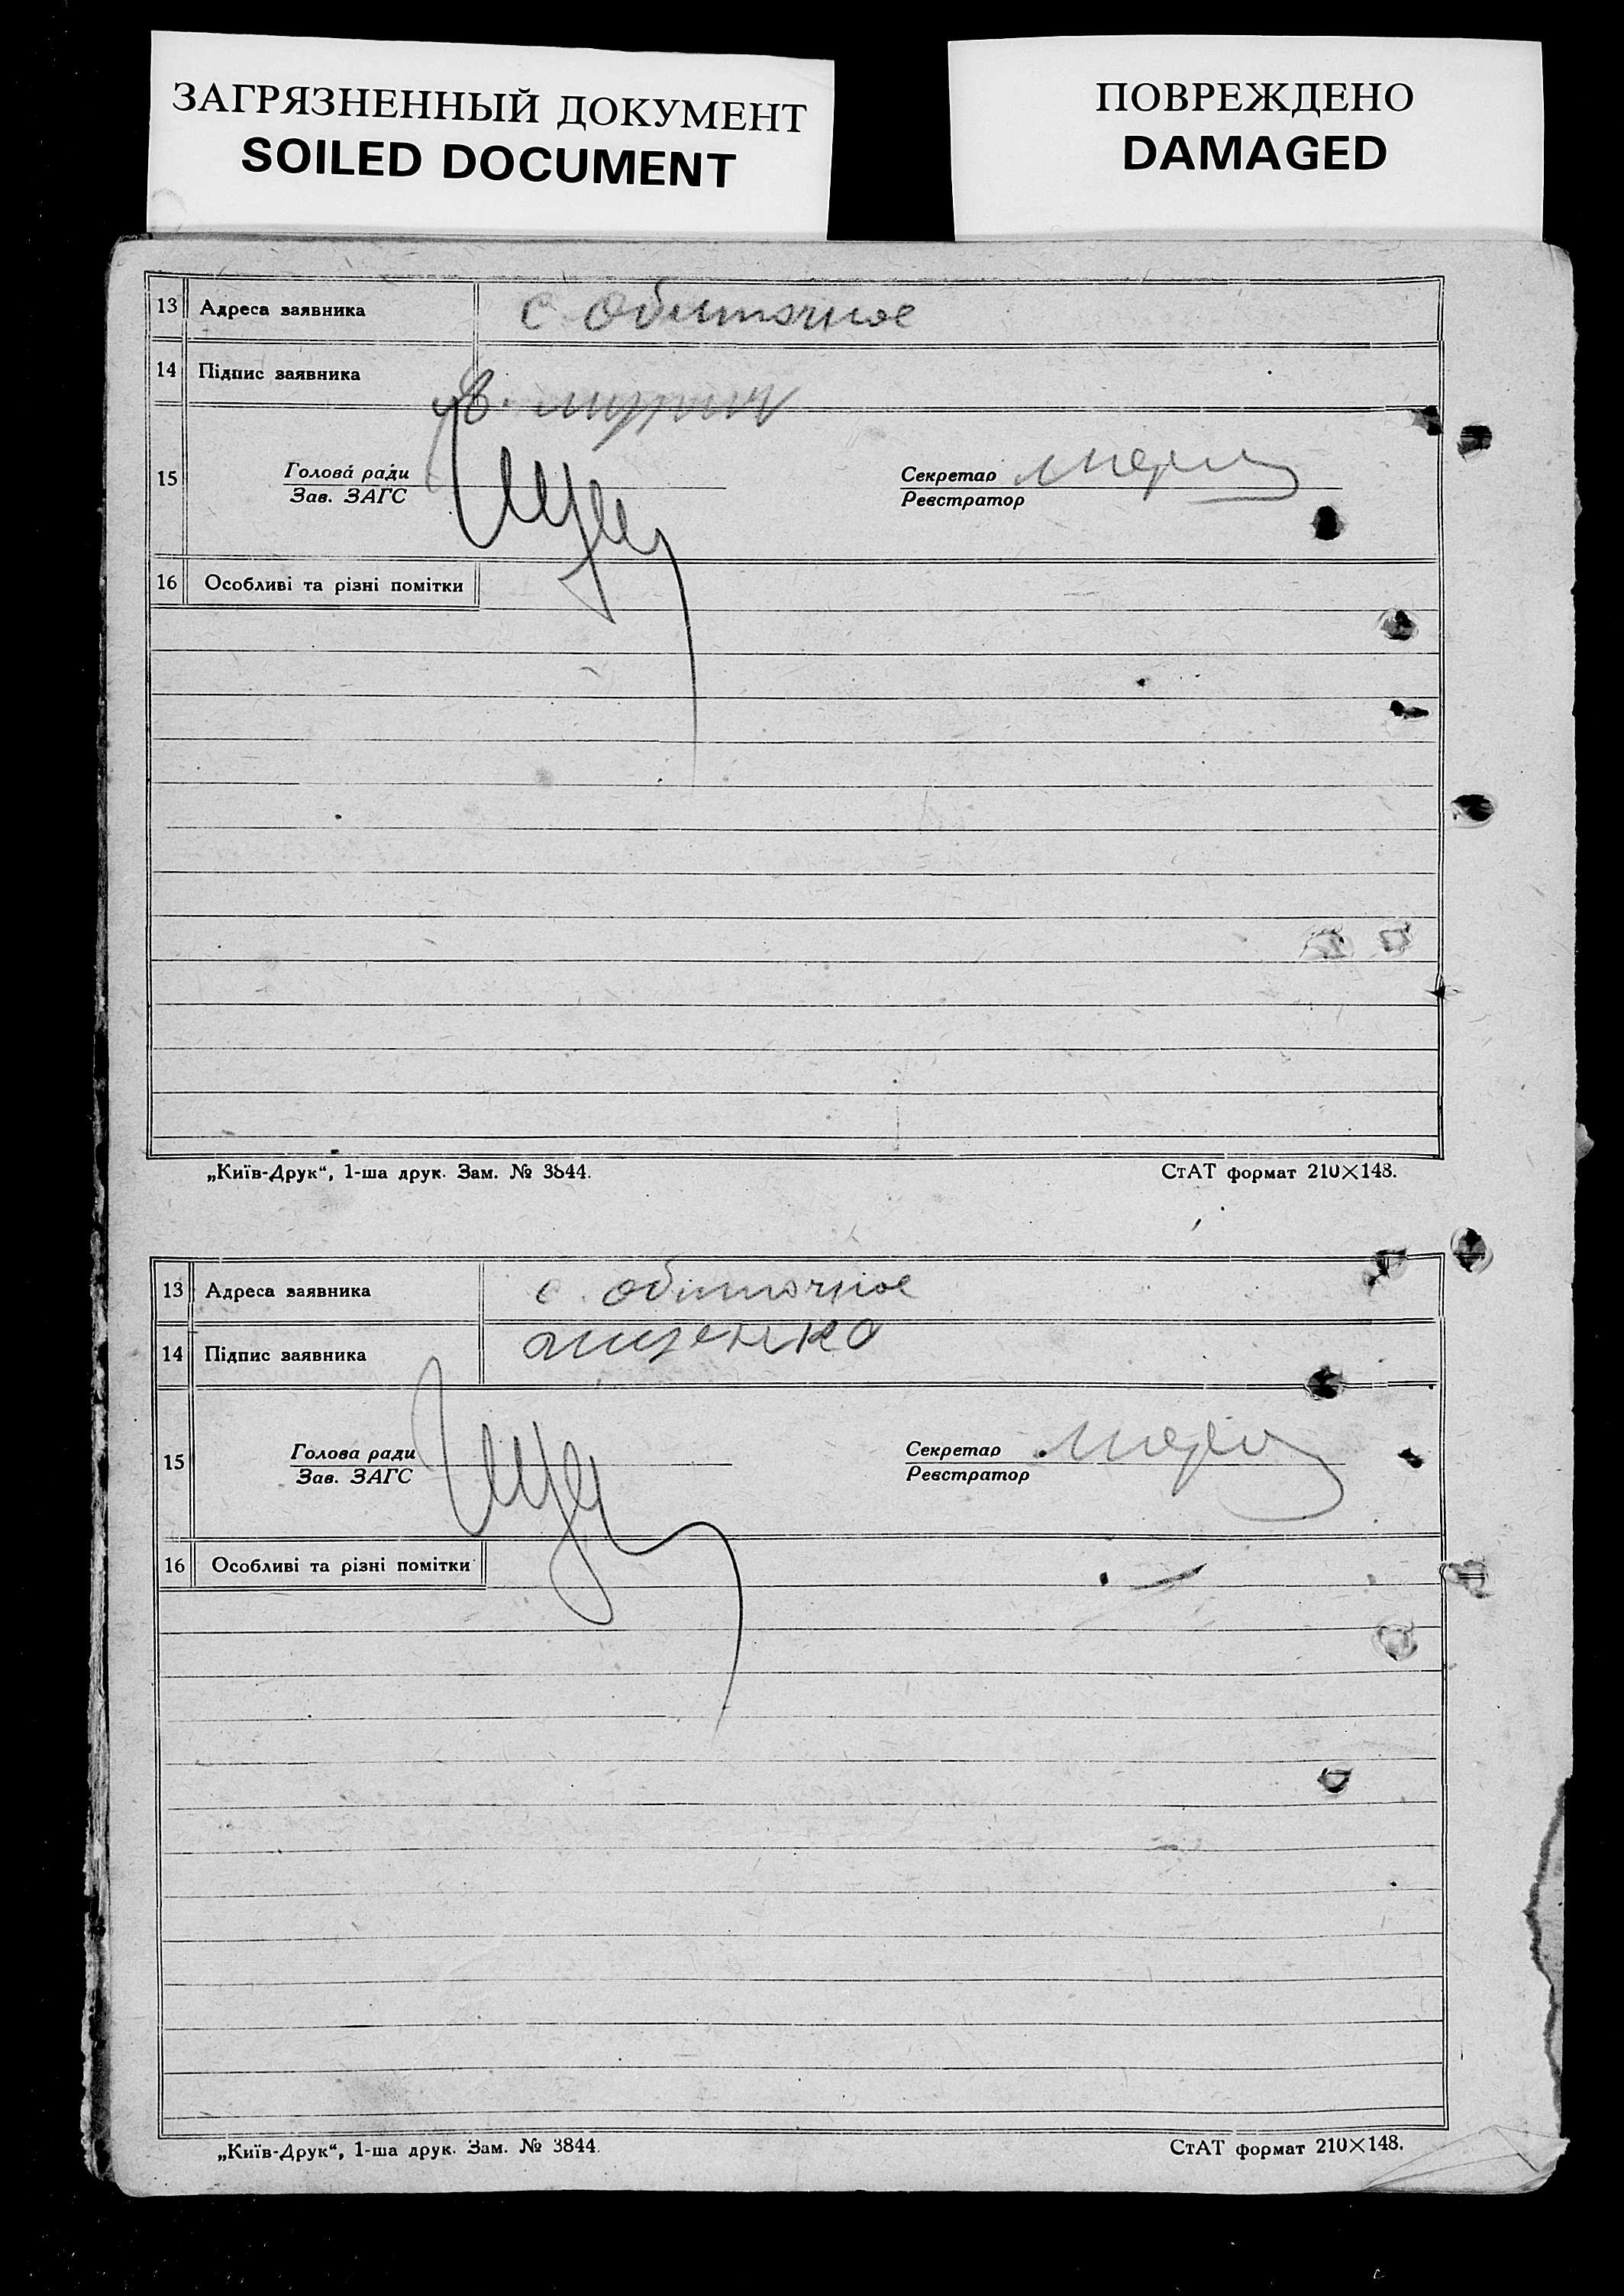 ЗАГРЯЗНЕННЫЙ ДОКУМЕНТ
SOILED DOCUMENT
ПОВРЕЖДЕНО
DAMAGED
13 Адреса заявника с Обиточное
14 Підпис заявника
15 Голова ради Секретар
Зав. ЗАГС Реєстратор
16 Особливі та різні помітки
„Київ-Друк“, 1-ша друк. Зам. № 3844. СтАТ формат 210×148.
13 Адреса заявника с. Обиточное
14 Підпис заявника
15 Голова ради Секретар
Зав. ЗАГС Реєстратор
16 Особливі та різні помітки
„Київ-Друк“, 1-ша друк. Зам. № 3844. СтАТ формат 210×148.